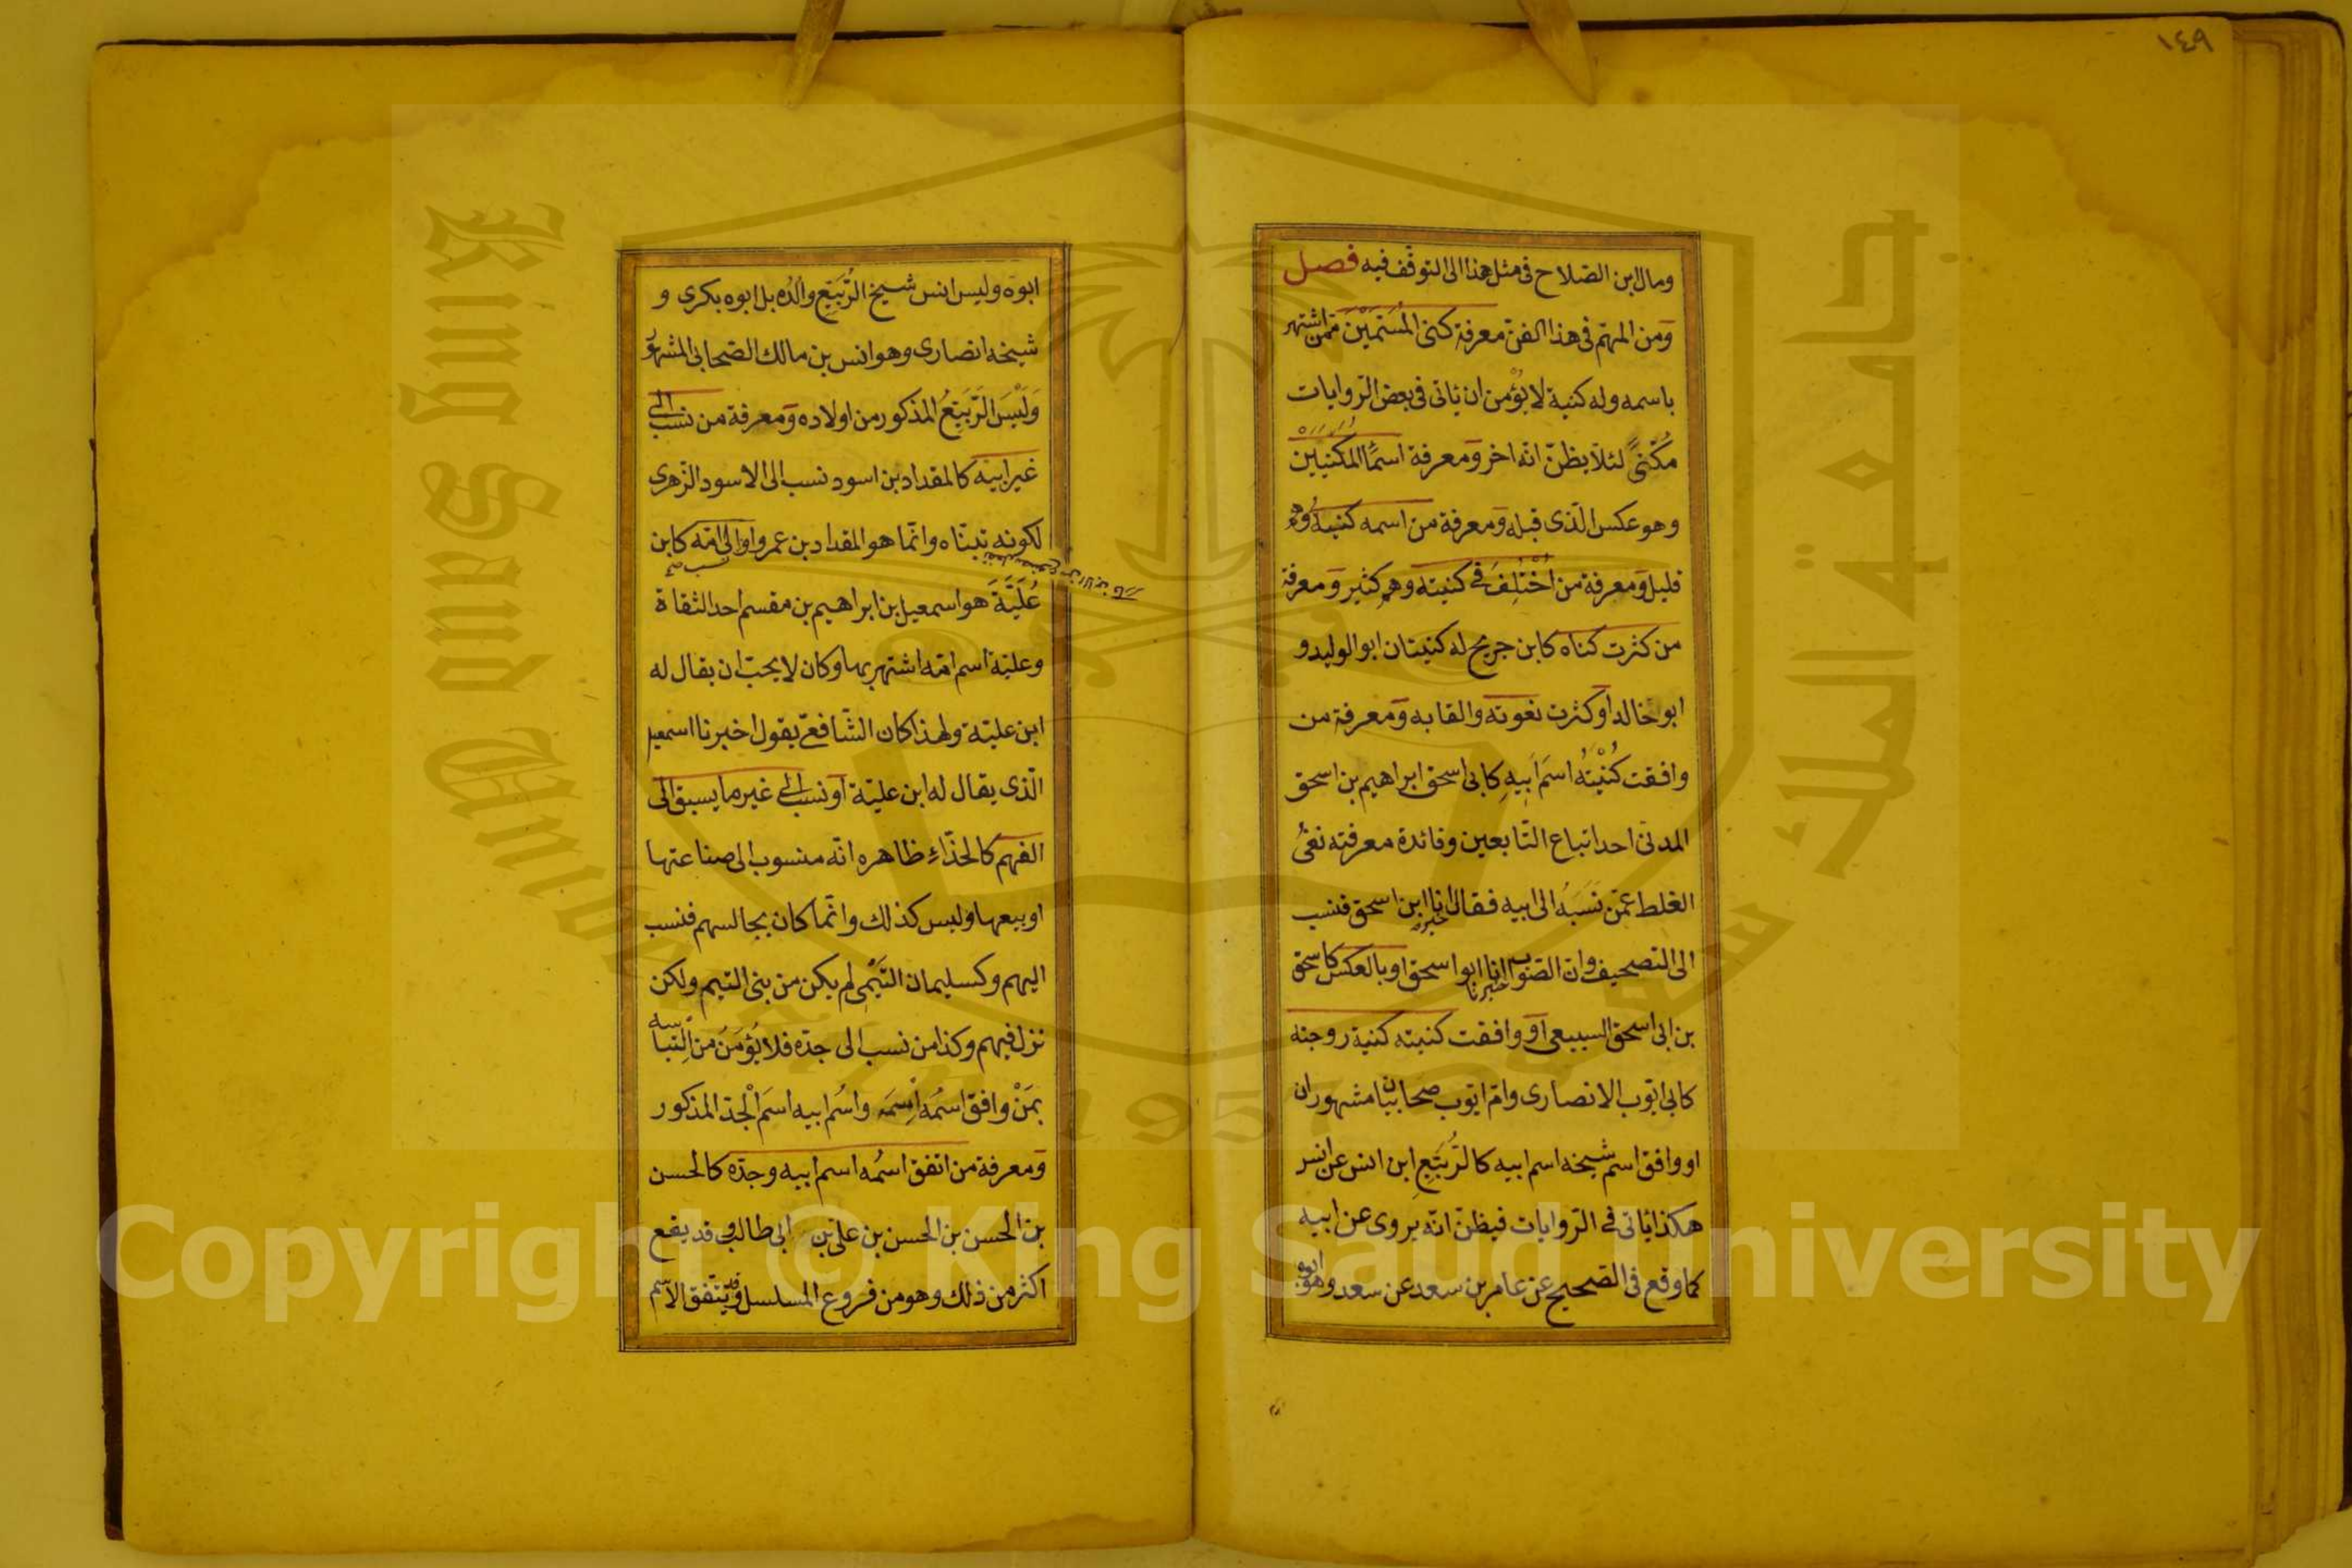 ١٤٩
ومال ابن الصّلاح فى مثل هذا الى التوقّف فيه فصل
وَمن المهمّ فى هذا الفنّ معرفة كنى المُسَمَّيْنَ ممّن اشتهر
باسمه وله كنية لا يُؤْمن ان ياتى فى بعض الرّوايات
مُكَنّىً لئلا يظنّ انّه اخر وَمعرفة اسمآء المُكَنَّيْن
وهو عكس الّذى قبله وَمعرفة من اسمه كنيتُهُ وهم
قليل وَمعرفة من اُخْتُلِفَ فى كنيته وهم كثير وَمعرفة
من كثرت كناه كابن جريج له كنيتان ابو الوليد و
ابو خالد اَو كثرت نعوته والقابه وَمعرفة من
وافقت كُنْيَتُهُ اسَمَ اَبِيهِ كابى اسحق ابراهيم بن اسحق
المدنىّ احد اتباع التّابعين وفائدة معرفته نفىُ
الغلط عمّن نَسَبَهُ الى ابيه فقال انا ابن اسحق فنسب
الى التصحيف وانّ الصّواب انا ابو اسحق او بالعكس كاسحق
بن ابى اسحق السبيعى اَو وافقت كنيته كنية زوجته
كابى ايّوب الانصارى وامّ ايّوب صحابيّان مشهوران
او وافق اسم شيخه اسم ابيه كالرَّبِيعِ ابن انس عن انس
هكذا ياتى فى الرّوايات فيظنّ انّه يروى عن ابيه
كما وقع فى الصّحيح عن عامر بن سعد عن سعد وهو ابوه
ابوه وليس انس شيخ الرَّبِيعِ والدُه بل ابوه بكرى و
شيخه انصارى وهو انس بن مالك الصّحابى المشهور
وَلَيْسَ الرَّبِيعُ المذكور من اولاده وَمعرفة من نسب الى
غير ابيه كالمقداد بن اسود نسب الى الاسود الزّهرى
لكونه تبنّاه وانّما هو المقداد بن عمرو او الى امّه كابن
عُلَيَّةَ هو اسمعيل بن ابراهيم بن مقسم احد الثقاة
وعليّة اسم امّه اشتهر بها وكان لا يحبّ ان يقال له
ابن عليّة ولهذا كان الشّافعىّ يقول اخبرنا اسمعيل
الّذى يقال له ابن عليّة اَو نسب الى غير ما يسبق الى
الفهم كالحذّاءِ ظاهره انّه منسوب الى صناعتها
او بيعها وليس كذلك وانّما كان يجالسهم فنسب
اليهم وكسليمان التَّيْمِى لم يكن من بنى التيم ولكن
نزل فيهم وكذا من نسب الى جدّه فلا يُؤْمَنُ من اِلتباسه
بمَنْ وافق اسمُهُ اِسمَهُ واسُم ابيه اسَم الْجدّ المذكور
وَمعرفة من اتفق اسمُه اسم ابيه وجدّه كالحسن
بن الحسن بن الحسن بن علىّ بن ابى طالب وقد يقع
اكثر من ذلك وهو من فروع المسلسل وقد يتّفق الاسم
King Saud University
1957
جامعة الملك سعود
Copyright © King Saud University